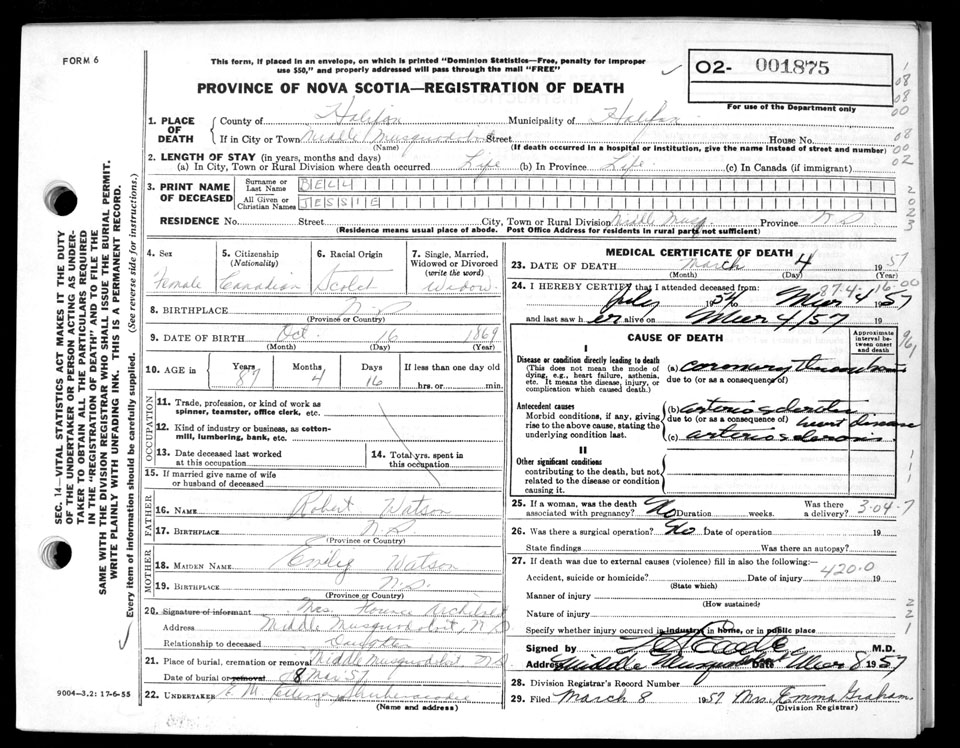 FORM 6
This form, if placed in an envelope, on which is printed "Dominion Statistics—Free, penalty for improper
use $50," and properly addressed will pass through the mail "FREE"
O2- 001875
For use of the Department only
PROVINCE OF NOVA SCOTIA—REGISTRATION OF DEATH
1. PLACE OF DEATH
County of Halifax Municipality of Halifax
If in City or Town Middle Musquodoboit Street House No.
(Name) (If death occurred in a hospital or institution, give the name instead of street and number)
2. LENGTH OF STAY (in years, months and days)
(a) In City, Town or Rural Division where death occurred Life (b) In Province Life (c) In Canada (if immigrant)
3. PRINT NAME OF DECEASED
Surname or Last Name BELL
All Given or Christian Names JESSIE
RESIDENCE No. Street City, Town or Rural Division Middle Musq. Province N S
(Residence means usual place of abode. Post Office Address for residents in rural parts not sufficient)
4. Sex Female
5. Citizenship (Nationality) Canadian
6. Racial Origin Scotch
7. Single, Married, Widowed or Divorced (write the word) Widow
8. BIRTHPLACE N.S.
(Province or Country)
9. DATE OF BIRTH Oct. 16 1869
(Month) (Day) (Year)
10. AGE in Years 87 Months 4 Days 16 If less than one day old
hrs. or min.
OCCUPATION
11. Trade, profession, or kind of work as spinner, teamster, office clerk, etc.
12. Kind of industry or business, as cotton-mill, lumbering, bank, etc.
13. Date deceased last worked at this occupation
14. Total yrs. spent in this occupation
15. If married give name of wife or husband of deceased
FATHER
16. NAME Robert Watson
17. BIRTHPLACE N.S.
(Province or Country)
MOTHER
18. MAIDEN NAME Emily Watson
19. BIRTHPLACE N.S.
(Province or Country)
20. Signature of informant Mrs. Archibald
Address Middle Musquodoboit, N S
Relationship to deceased Daughter
21. Place of burial, cremation or removal Middle Musquodoboit N.S.
Date of burial or removal 8 Mar 57
22. UNDERTAKER Shubenacadie
(Name and address)
9004—3.2: 17-6-55
MEDICAL CERTIFICATE OF DEATH
23. DATE OF DEATH March 4 1957
(Month) (Day) (Year)
24. I HEREBY CERTIFY that I attended deceased from:
July 1954 to Mar 4 1957
and last saw her alive on Mar 4/57 19
CAUSE OF DEATH
Approximate interval between onset and death
I
Disease or condition directly leading to death
(This does not mean the mode of dying, e.g., heart failure, asthenia, etc. It means the disease, injury, or complication which caused death.)
(a) coronary thrombosis
due to (or as a consequence of)
Antecedent causes
Morbid conditions, if any, giving rise to the above cause, stating the underlying condition last.
(b) arteriosclerotic
due to (or as a consequence of) heart disease
(c) arteriosclerosis
II
Other significant conditions
contributing to the death, but not related to the disease or condition causing it.
25. If a woman, was the death associated with pregnancy? No Duration weeks. Was there a delivery?
3-04-7
26. Was there a surgical operation? No Date of operation 19
State findings Was there an autopsy?
27. If death was due to external causes (violence) fill in also the following:—
420.0
Accident, suicide or homicide? Date of injury 19
(State which)
Manner of injury
(How sustained)
Nature of injury
Specify whether injury occurred in industry in home, or in public place
Signed by M.D.
Address Middle Musquodoboit Date Mar 8 1957
28. Division Registrar's Record Number
29. Filed March 8 1957 Mrs. Emma Graham
(Division Registrar)
SEC. 14—VITAL STATISTICS ACT MAKES IT THE DUTY
OF THE UNDERTAKER OR PERSON ACTING AS UNDER-
TAKER TO OBTAIN ALL THE PARTICULARS REQUIRED
IN THE "REGISTRATION OF DEATH" AND TO FILE THE
SAME WITH THE DIVISION REGISTRAR WHO SHALL ISSUE THE BURIAL PERMIT.
WRITE PLAINLY WITH UNFADING INK. THIS IS A PERMANENT RECORD.
Every item of information should be carefully supplied. (See reverse side for instructions.)